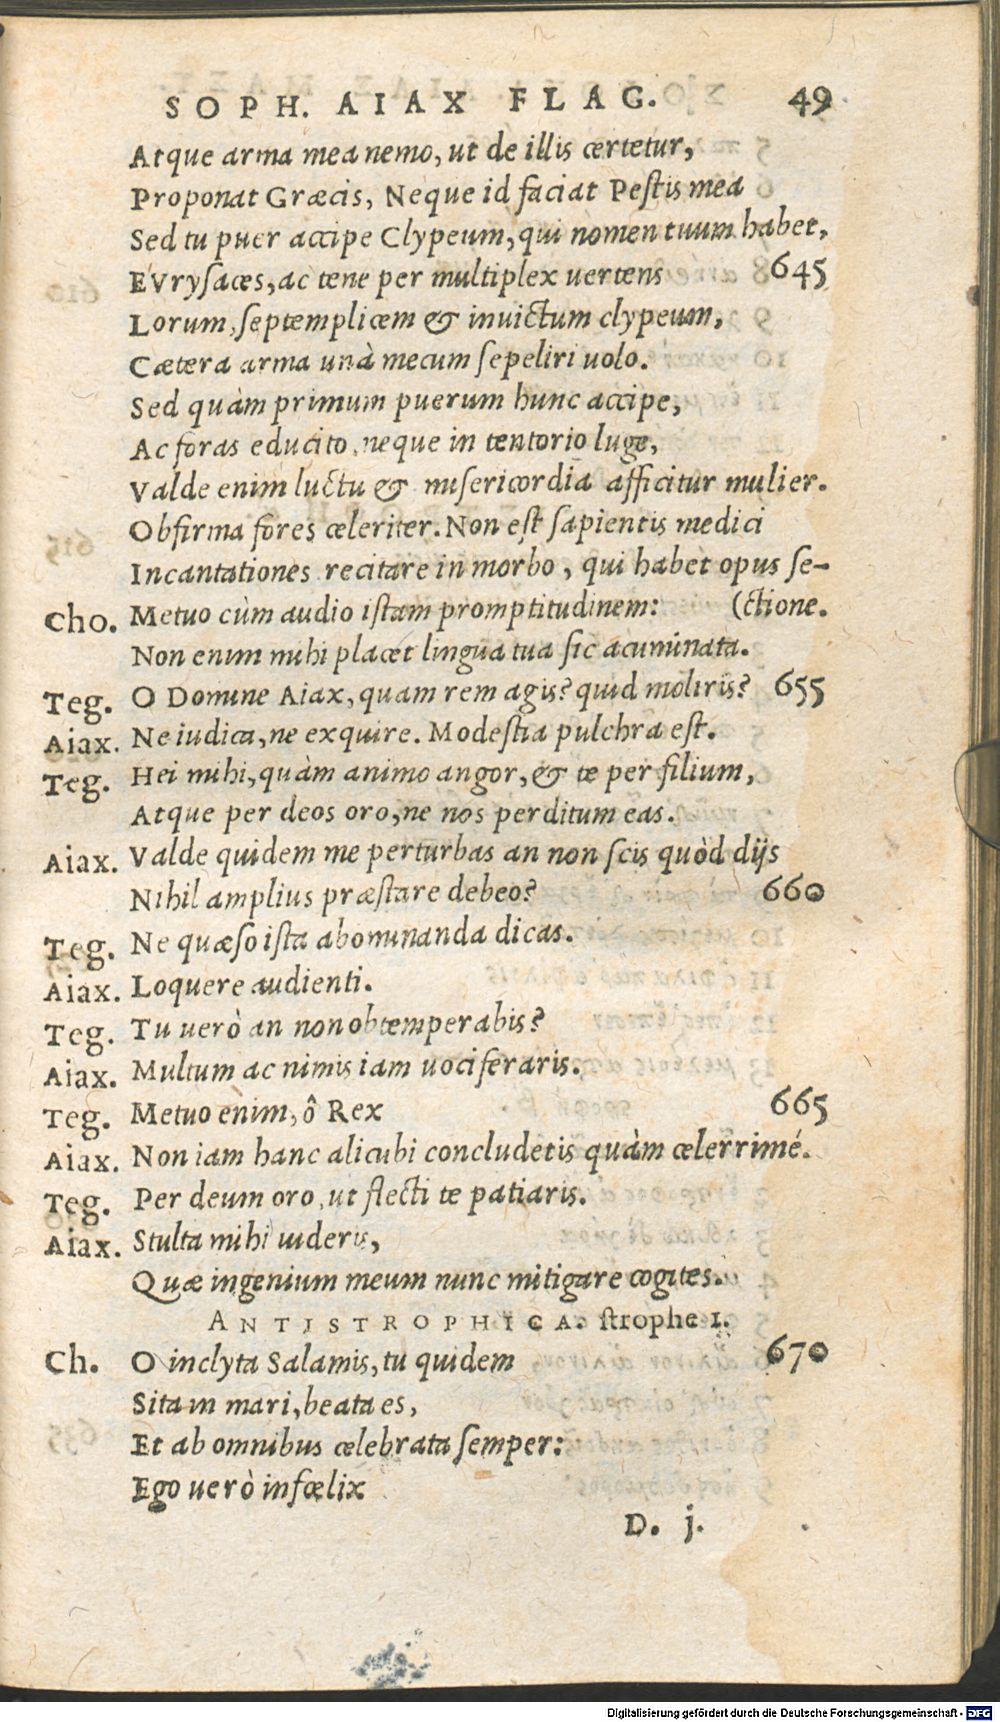 SOPH. AIAX FLAG. 49
Atque arma mea nemo, ut de illis certetur,
Proponat Græcis, Neque id faciat Pestis mea
Sed tu puer accipe Clypeum, qui nomen tuum habet,
EVrysaces, ac tene per multiplex uertens 645
Lorum, septemplicem & inuictum clypeum,
Cætera arma unà mecum sepeliri uolo.
Sed quàm primum puerum hunc accipe,
Ac foras educito, neque in tentorio luge,
Valde enim luctu & misericordia afficitur mulier.
Obfirma fores celeriter. Non est sapientis medici
Incantationes recitare in morbo, qui habet opus se-
Cho. Metuo cùm audio istam promptitudinem: (ctione.
Non enim mihi placet lingua tua sic acuminata.
Teg. O Domine Aiax, quam rem agis? quid moliris? 655
Aiax. Ne iudica, ne exquire. Modestia pulchra est.
Teg. Hei mihi, quàm animo angor, & te per filium,
Atque per deos oro, ne nos perditum eas.
Aiax. Valde quidem me perturbas an non scis quòd dijs
Nihil amplius præstare debeo? 660
Teg. Ne quæso ista abominanda dicas.
Aiax. Loquere audienti.
Teg. Tu uerò an non obtemperabis?
Aiax. Multum ac nimis iam uociferaris.
Teg. Metuo enim, ô Rex 665
Aiax. Non iam hanc alicubi concludetis quàm celerrimé.
Teg. Per deum oro, ut flecti te patiaris.
Aiax. Stulta mihi uideris,
Quæ ingenium meum nunc mitigare cogites.
ANTISTROPHICA. strophe 1.
Ch. O inclyta Salamis, tu quidem 670
Sita in mari, beata es,
Et ab omnibus celebrata semper:
Ego uerò infœlix
D. j.
Digitalisierung gefördert durch die Deutsche Forschungsgemeinschaft - DFG